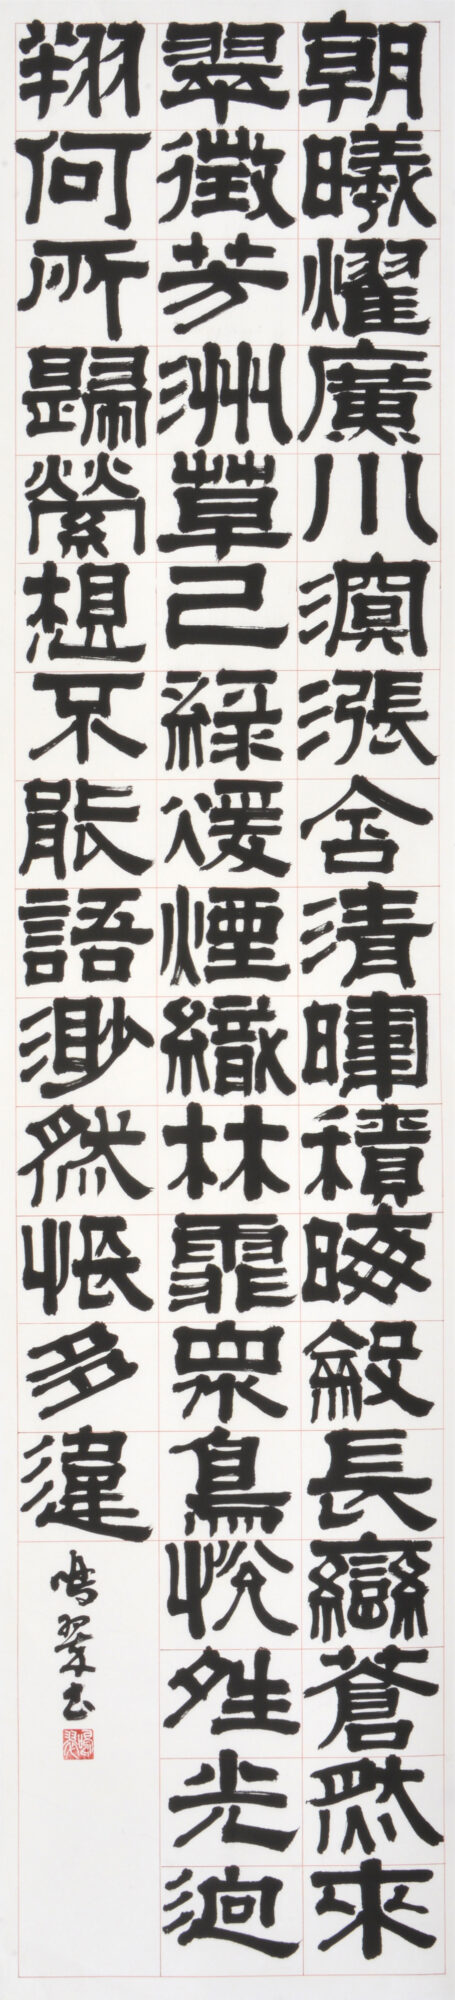 朝曦燿廣川溟漲含清暉積晦斂長巒蒼然來
翠微芳洲草已綠煖煙織林霏眾鳥悅夝光迥
翔何所歸縈想不能語渺然悵多違
鳴翠書